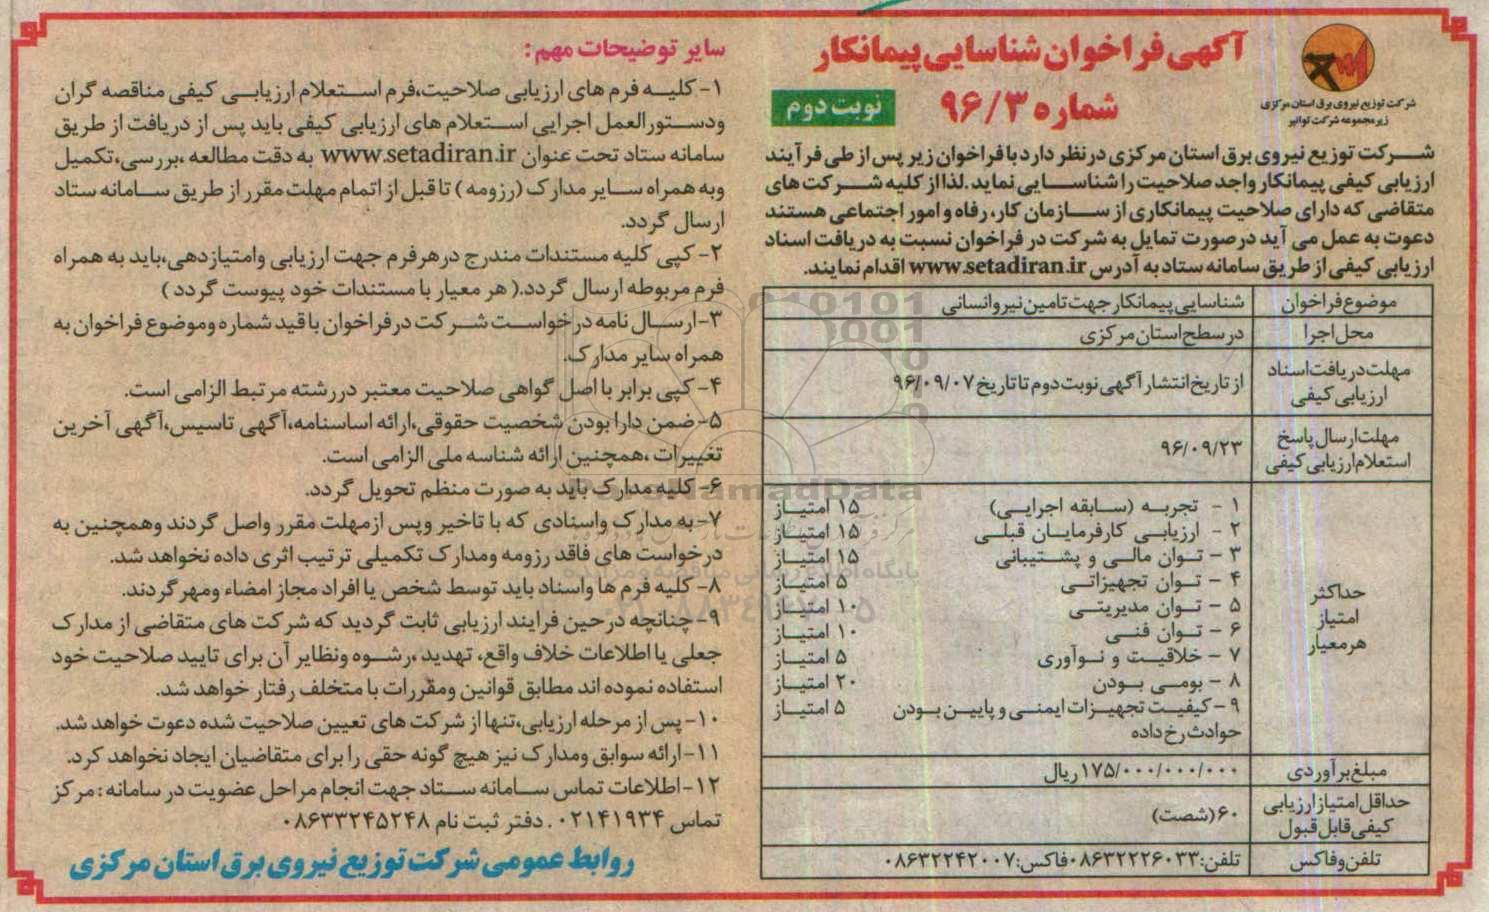 آگهی فراخوان شناسایی پیمانکار
شماره ۹۶/۳
نوبت دوم
شرکت توزیع نیروی برق استان مرکزی
زیرمجموعه شرکت توانیر
شرکت توزیع نیروی برق استان مرکزی در نظر دارد با فراخوان زیر پس از طی فرآیند
ارزیابی کیفی پیمانکار واجد صلاحیت را شناسایی نماید. لذا از کلیه شرکت های
متقاضی که دارای صلاحیت پیمانکاری از سازمان کار، رفاه و امور اجتماعی هستند
دعوت به عمل می آید در صورت تمایل به شرکت در فراخوان نسبت به دریافت اسناد
ارزیابی کیفی از طریق سامانه ستاد به آدرس www.setadiran.ir اقدام نمایند.
موضوع فراخوان شناسایی پیمانکار جهت تامین نیرو انسانی
محل اجرا در سطح استان مرکزی
مهلت دریافت اسناد
ارزیابی کیفی از تاریخ انتشار آگهی نوبت دوم تا تاریخ ۹۶/۰۹/۰۷
مهلت ارسال پاسخ
استعلام ارزیابی کیفی ۹۶/۰۹/۲۳
حداکثر
امتیاز
هر معیار
۱ - تجربه (سابقه اجرایی) ۱۵ امتیاز
۲ - ارزیابی کارفرمایان قبلی ۱۵ امتیاز
۳ - توان مالی و پشتیبانی ۱۵ امتیاز
۴ - توان تجهیزاتی ۵ امتیاز
۵ - توان مدیریتی ۱۰ امتیاز
۶ - توان فنی ۱۰ امتیاز
۷ - خلاقیت و نوآوری ۵ امتیاز
۸ - بومی بودن ۲۰ امتیاز
۹ - کیفیت تجهیزات ایمنی و پایین بودن ۵ امتیاز
حوادث رخ داده
مبلغ برآوردی ۱۷۵/۰۰۰/۰۰۰/۰۰۰ ریال
حداقل امتیاز ارزیابی
کیفی قابل قبول ۶۰ (شصت)
تلفن و فاکس تلفن: ۰۸۶۳۲۲۲۶۰۳۳ فاکس: ۰۸۶۳۲۲۴۲۰۰۷
سایر توضیحات مهم:
۱- کلیه فرم های ارزیابی صلاحیت، فرم استعلام ارزیابی کیفی مناقصه گران
ودستورالعمل اجرایی استعلام های ارزیابی کیفی باید پس از دریافت از طریق
سامانه ستاد تحت عنوان www.setadiran.ir به دقت مطالعه ،بررسی،تکمیل
وبه همراه سایر مدارک (رزومه) تا قبل از اتمام مهلت مقرر از طریق سامانه ستاد
ارسال گردد.
۲- کپی کلیه مستندات مندرج درهرفرم جهت ارزیابی وامتیازدهی،باید به همراه
فرم مربوطه ارسال گردد.( هر معیار با مستندات خود پیوست گردد )
۳-ارسال نامه درخواست شرکت درفراخوان با قید شماره وموضوع فراخوان به
همراه سایر مدارک.
۴- کپی برابر با اصل گواهی صلاحیت معتبر دررشته مرتبط الزامی است.
۵-ضمن دارا بودن شخصیت حقوقی،ارائه اساسنامه،آگهی تاسیس،آگهی آخرین
تغییرات ،همچنین ارائه شناسه ملی الزامی است.
۶- کلیه مدارک باید به صورت منظم تحویل گردد.
۷-به مدارک واسنادی که با تاخیر وپس ازمهلت مقرر واصل گردند وهمچنین به
درخواست های فاقد رزومه ومدارک تکمیلی ترتیب اثری داده نخواهد شد.
۸- کلیه فرم ها واسناد باید توسط شخص یا افراد مجاز امضاء ومهر گردند.
۹-چنانچه درحین فرایند ارزیابی ثابت گردید که شرکت های متقاضی از مدارک
جعلی یا اطلاعات خلاف واقع، تهدید ،رشوه ونظایر آن برای تایید صلاحیت خود
استفاده نموده اند مطابق قوانین ومقررات با متخلف رفتار خواهد شد.
۱۰-پس از مرحله ارزیابی،تنها از شرکت های تعیین صلاحیت شده دعوت خواهد شد.
۱۱-ارائه سوابق ومدارک نیز هیچ گونه حقی را برای متقاضیان ایجاد نخواهد کرد.
۱۲-اطلاعات تماس سامانه ستاد جهت انجام مراحل عضویت در سامانه: مرکز
تماس ۰۲۱۴۱۹۳۴ . دفتر ثبت نام ۰۸۶۳۳۲۴۵۲۴۸
روابط عمومی شرکت توزیع نیروی برق استان مرکزی